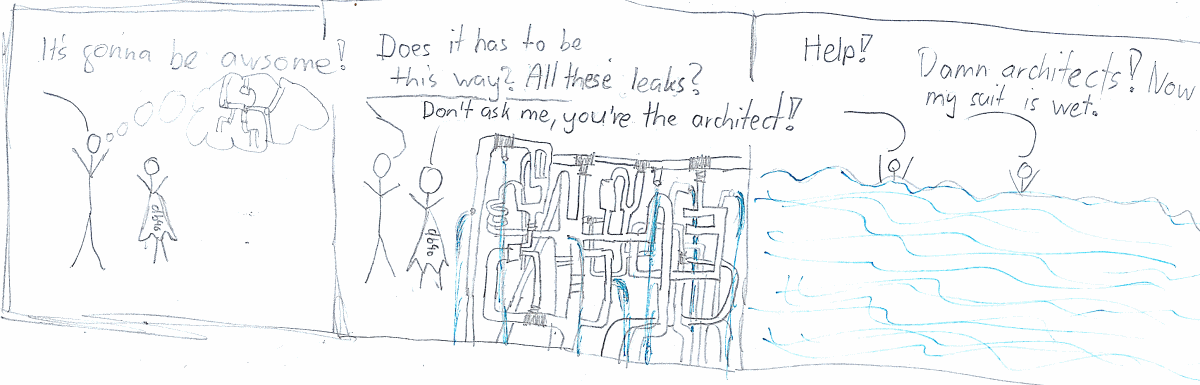 It's gonna be awsome!
Does it has to be
this way? All these leaks?
Don't ask me, you're the architect!
Help!
Damn architects! Now
my suit is wet.